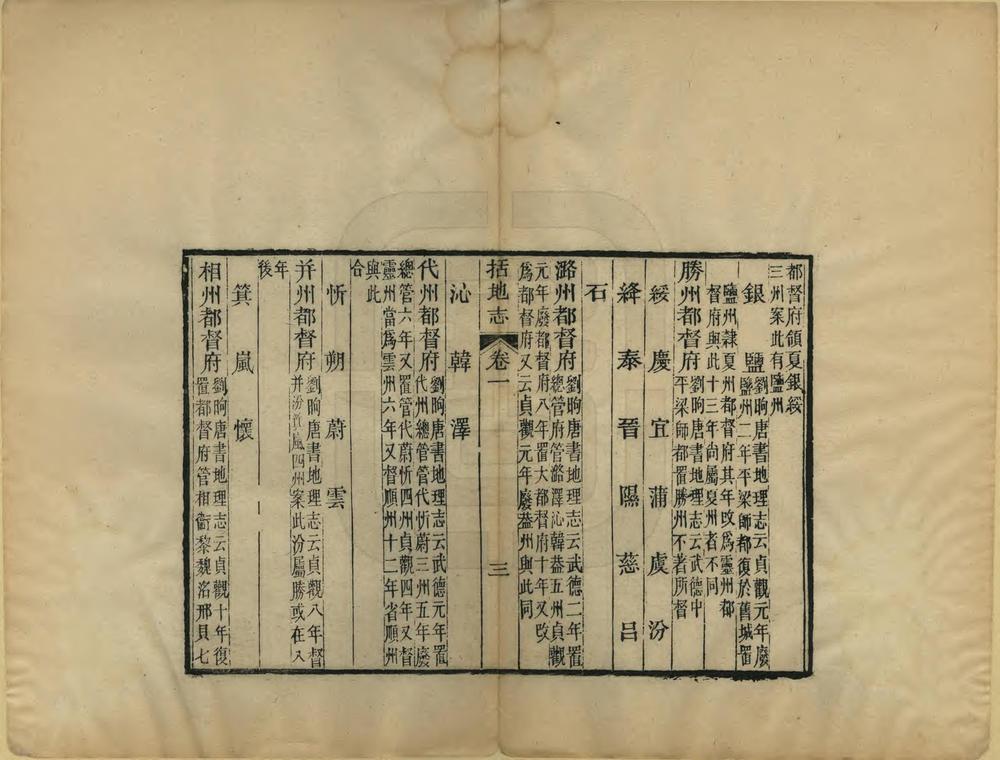 都督府領夏銀綏
三州案此有鹽州
銀　鹽劉昫唐書地理志云貞觀元年廢
鹽州二年平梁師都復於舊城置
鹽州隸夏州都督府其年改為靈州都
督府與此十三年尚屬夏州者不同
勝州都督府劉昫唐書地理志云武德中
平梁師都置勝州不著所督
綏　慶　宜　蒲　虞　汾
絳　泰　晉　隰　慈　呂
石
潞州都督府劉昫唐書地理志云武德二年置
總管府管潞澤沁韓蓋五州貞觀
元年廢都督府八年置大都督府十年又改
為都督府又云貞觀元年廢蓋州與此同
括地志　卷一　三
沁　韓　澤
代州都督府劉昫唐書地理志云武德元年置
代州總管管代忻蔚三州五年廢
總管六年又置管代蔚忻四州貞觀四年又督
靈州當為雲州六年又督順州十二年省順州
與此
合
忻　朔　蔚　雲
并州都督府劉昫唐書地理志云貞觀八年督
并汾箕嵐四州案此汾屬勝或在八
年
後
箕　嵐　懷
相州都督府劉昫唐書地理志云貞觀十年復
置都督府管相衛黎魏洺邢貝七